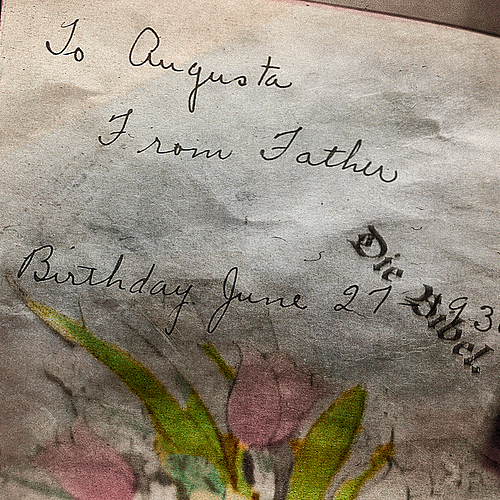 To Augusta
From Father
Birthday June 27
Die Bibel.